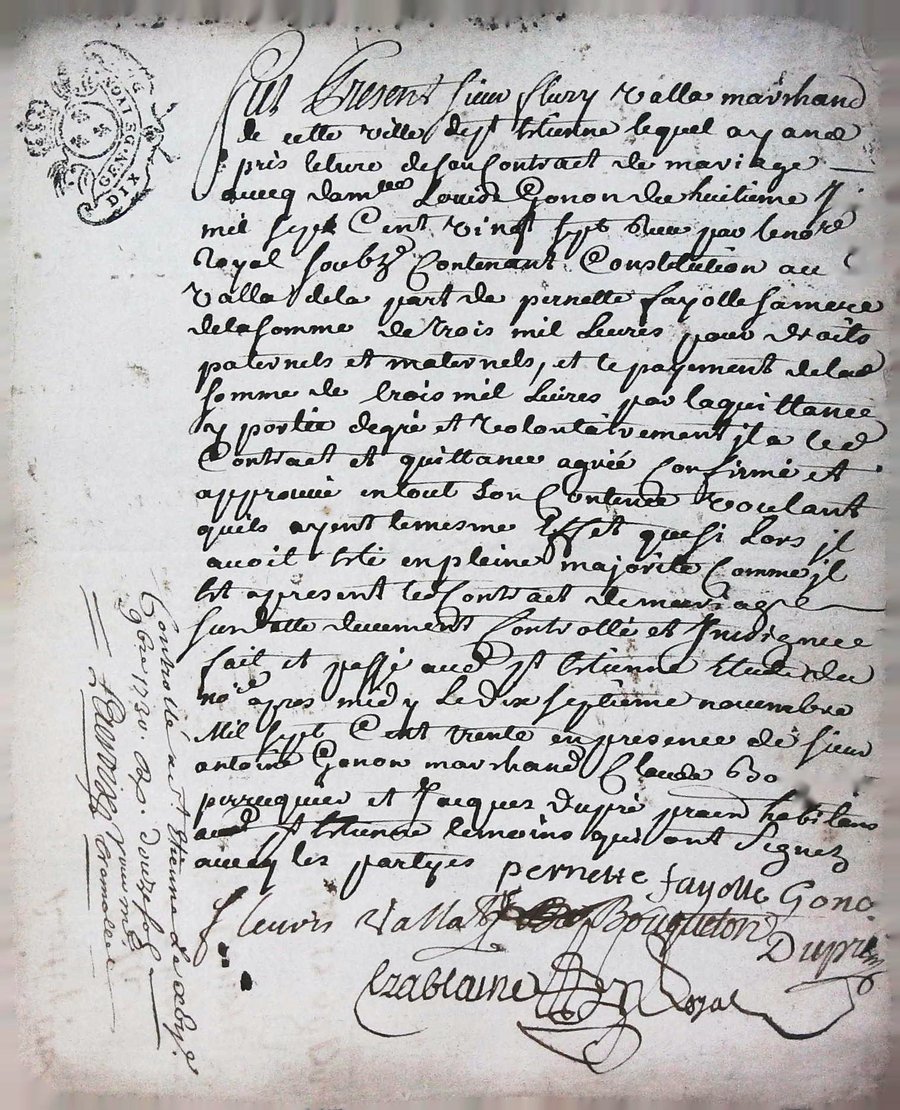 GEN DE LION
GENDSEIZ
DIX
Fut Present sieur fleury Valla marchand
de cette ville de st Etienne lequel ayand
pris leture de son Contract de mariage
avecq dam.lle Louise Gonon du huitieme
mil sept Cent vingt sept Reçu par le no.re
Royal soubz.né Contenant Constitution au
Valla de la part de pernette fayolle sa mere
de la somme de trois mil Livres pour droits
paternels et maternels, et le payement de lad
somme de trois mil Livres par la quittance
y portée de gré et volontairement jl a led
Contract et quittance agréé Confirmé et
approuvé en tout son Contenu voulant
quils ayent le mesme Effet que si Lors jl
avoit Esté en pleine majorité Comme jl
Est apresent led Contract de mariage
surdatte duement Controllé et Insignué
fait et passé aud st Etienne Etude du
no.re apres midy Le dix septieme novembre
Mil sept Cent trente en presence de sieur
antoine Gonon marchand Claude Bo
perruquier et Jacques Dupré praen habitans
aud st Etienne temoins qui ont signez
avecq les partyes
pernette fayolle Gono
fleuris Valla Bouqueton
Dupré
Ezablaine Royal
Controllé à St Etienne le
9bre 1730. Rx. douze sols